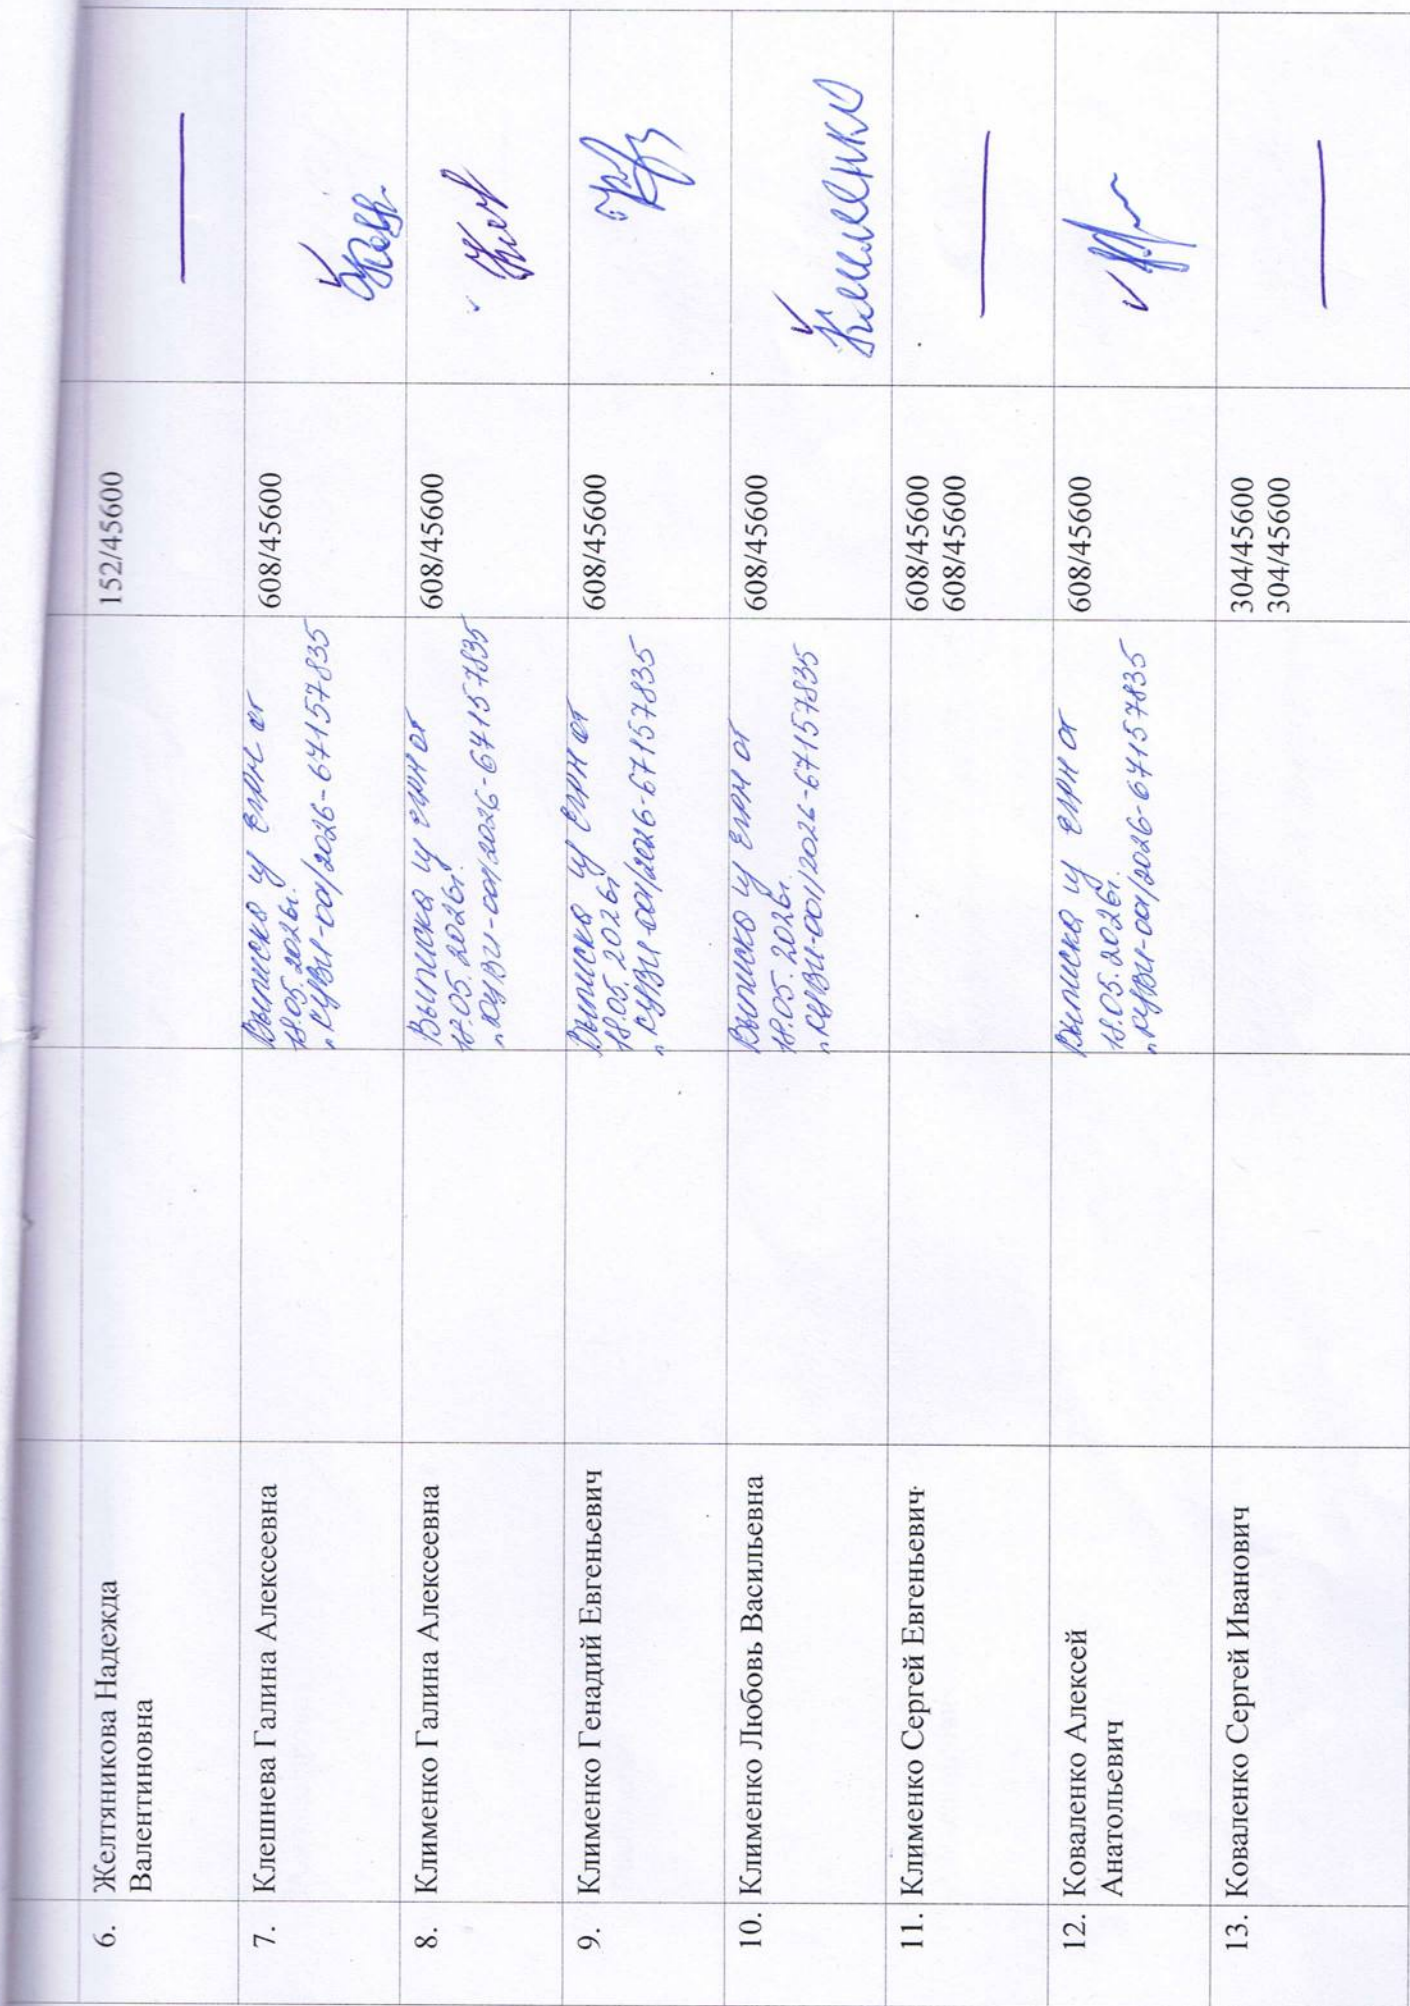 6. Желтяникова Надежда
Валентиновна
152/45600
7. Клешнева Галина Алексеевна
Выписка из ЕГРН от
18.05.2026г.
№ КУВИ-001/2026-67157835
608/45600
8. Клименко Галина Алексеевна
Выписка из ЕГРН от
18.05.2026г.
№ КУВИ-001/2026-67157835
608/45600
9. Клименко Генадий Евгеньевич
Выписка из ЕГРН от
18.05.2026г
№ КУВИ-001/2026-67157835
608/45600
10. Клименко Любовь Васильевна
Выписка из ЕГРН от
18.05.2026г.
№ КУВИ-001/2026-67157835
608/45600
Клименко
11. Клименко Сергей Евгеньевич
608/45600
608/45600
12. Коваленко Алексей
Анатольевич
Выписка из ЕГРН от
18.05.2026г.
№ КУВИ-001/2026-67157835
608/45600
13. Коваленко Сергей Иванович
304/45600
304/45600